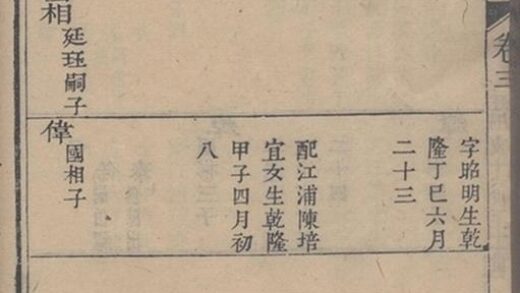 卷三
相
廷珏嗣子
字昭明生乾
隆丁巳六月
二十三
配江浦陳培
宜女生乾隆
甲子四月初
八
偉
國相子